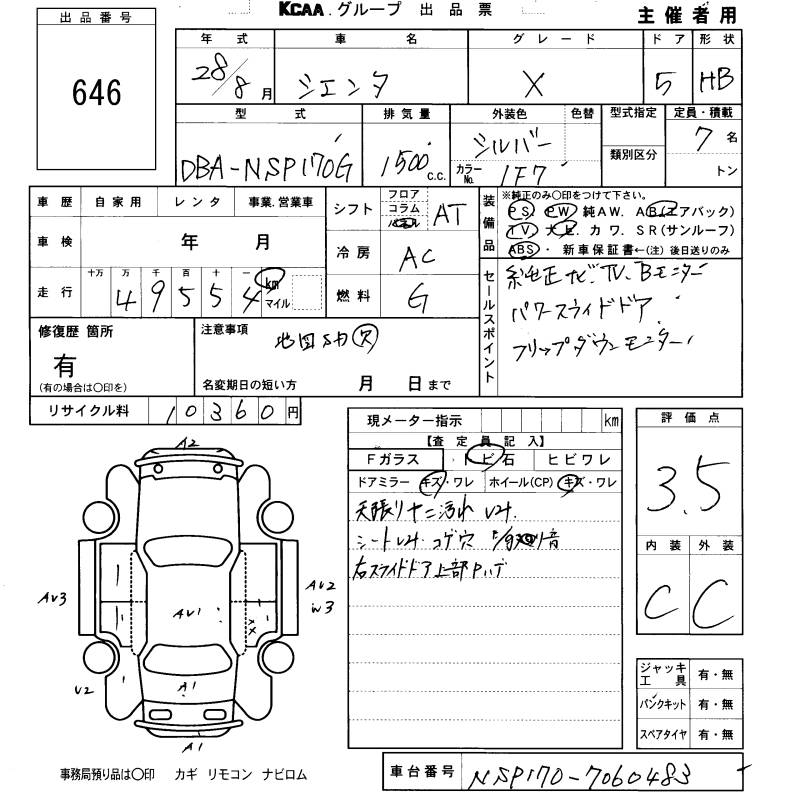 KCAA.グループ 出品票
主催者用
出品番号
646
年式 車名 グレード ドア 形状
28/8月 シエンタ X 5 HB
型式 排気量 外装色 色替 型式指定 定員・積載
DBA-NSP170G 1500c.c. シルバー 7名
カラーNo. 1F7 類別区分 トン
車歴 自家用 レンタ 事業.営業車
車検 年 月
走行 十万 万 千 百 十 一
49554 km マイル
シフト フロア コラム AT
冷房 AC
燃料 G
装備品 ※純正のみ○印をつけて下さい。
PS. PW 純AW. AB.(エアバック)
TV. カワ. SR(サンルーフ)
ABS・ 新車保証書←(注) 後日送りのみ
セールスポイント
純正ナビ.TV.Bモニター
パワースライドドア.
フリップダウンモニター
修復歴 箇所
有
(有の場合は○印を)
注意事項
地図SD欠
名変期日の短い方 月 日まで
リサイクル料 10360円
現メーター指示 km
【査定員記入】
Fガラス トビ石 ヒビワレ
ドアミラー キズ・ワレ ホイール(CP) キズ・ワレ
天張りヤニ汚れ
シート コゲ穴
右スライドドア上部
評価点
3.5
内装 外装
C C
ジャッキ工具 有・無
パンクキット 有・無
スペアタイヤ 有・無
A2
AV3
AV1
AV2
W3
U2
A1
A1
事務局預り品は○印 カギ リモコン ナビロム
車台番号 NSP170-7060483